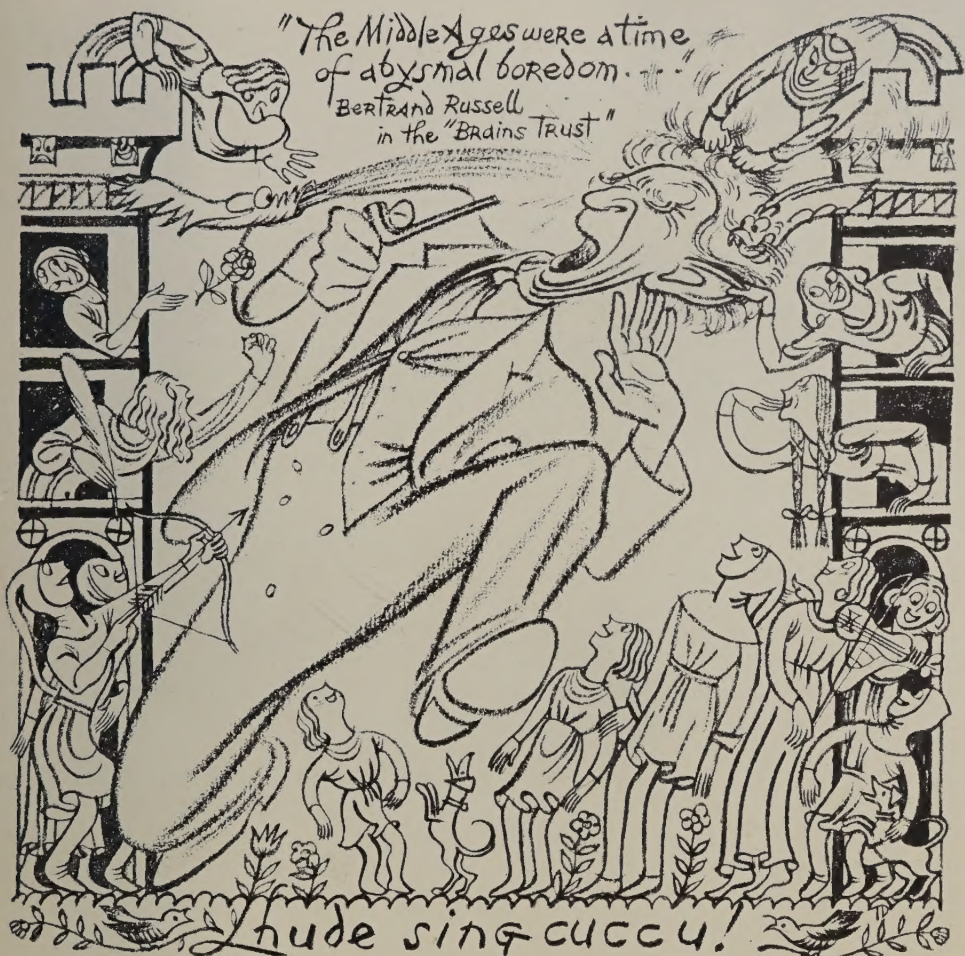 "The Middle Ages were a time
of abysmal boredom. . . ."
Bertrand Russell
in the "Brains Trust"
Lhude sing cuccu!